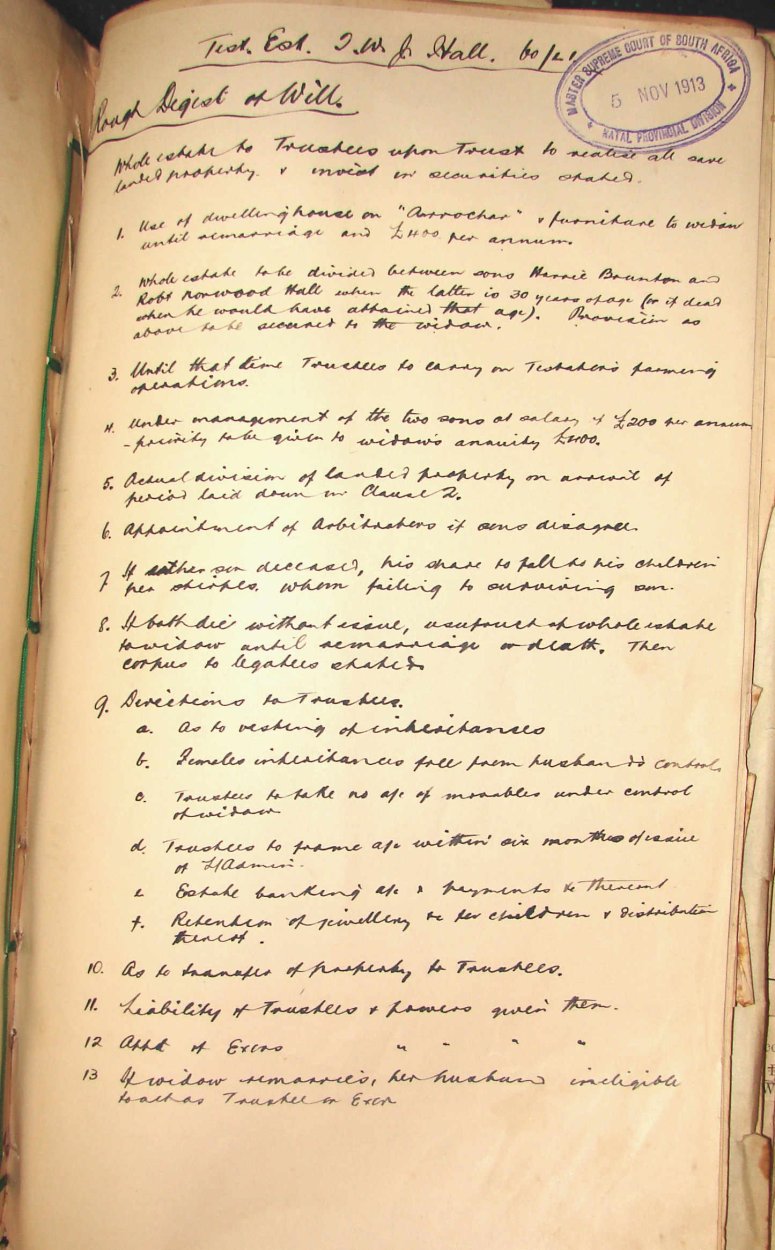 Test. Est. J. W. J. Hall. 60/21
MASTER SUPREME COURT OF SOUTH AFRICA
5 NOV 1913
NATAL PROVINCIAL DIVISION
Rough Digest of Will.
Whole estate to Trustees upon Trust to realise all save
landed property. & invest in securities stated.
1. Use of dwellinghouse on "Aarrochar" & furniture to widow
until remarriage and £400 per annum.
2. Whole estate to be divided between sons Harrie Brunton and
Robt Norwood Hall when the latter is 30 years of age (or if dead
when he would have attained that age). Provision as
above to be secured to the widow.
3. Until that time Trustees to carry on Testator's farming
operations.
4. Under management of the two sons at salary of £200 per annum
- priority to be given to widow's annuity £400.
5. Actual division of landed property on arrival of
period laid down in Clause 2.
6. Appointment of Arbitrators if sons disagree.
7 If either son deceased, his share to fall to his children
per stirpes. whom failing to surviving son.
8. If both die without issue, usufruct of whole estate
to widow until remarriage or death. Then
corpus to legatees stated.
9. Directions to Trustees.
a. As to vesting of inheritances
b. Females inheritances free from husband's control.
c. Trustees to take no a/c of movables under control
of widow
d. Trustees to frame a/c within six months of issue
of L/Admin.
e Estate banking a/c & payments &c thereout
f. Retention of jewellery &c for children & distribution
thereof.
10. As to transfer of property to Trustees.
11. Liability of Trustees & powers given them.
12 Appt of Exors " " " "
13 If widow remarries, her husband ineligible
to act as Trustee or Exor